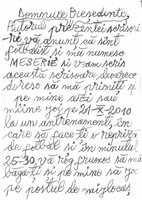 Domnule Președinte,
Autorul prezentei scrisori
vă anunț că sînt
fotbalist și mă numesc
MESERIE și v-am scris
această scrisoare deoarece
doresc să mă primiți și
pe mine azi sau
mîine joi pe 21-3-2010
la un antrenament, în
care să faceți o repriză
de fotbal și în minutul
25-30, vă rog frumos să mă
băgați și pe mine să joc
pe postul de mijlocaș,